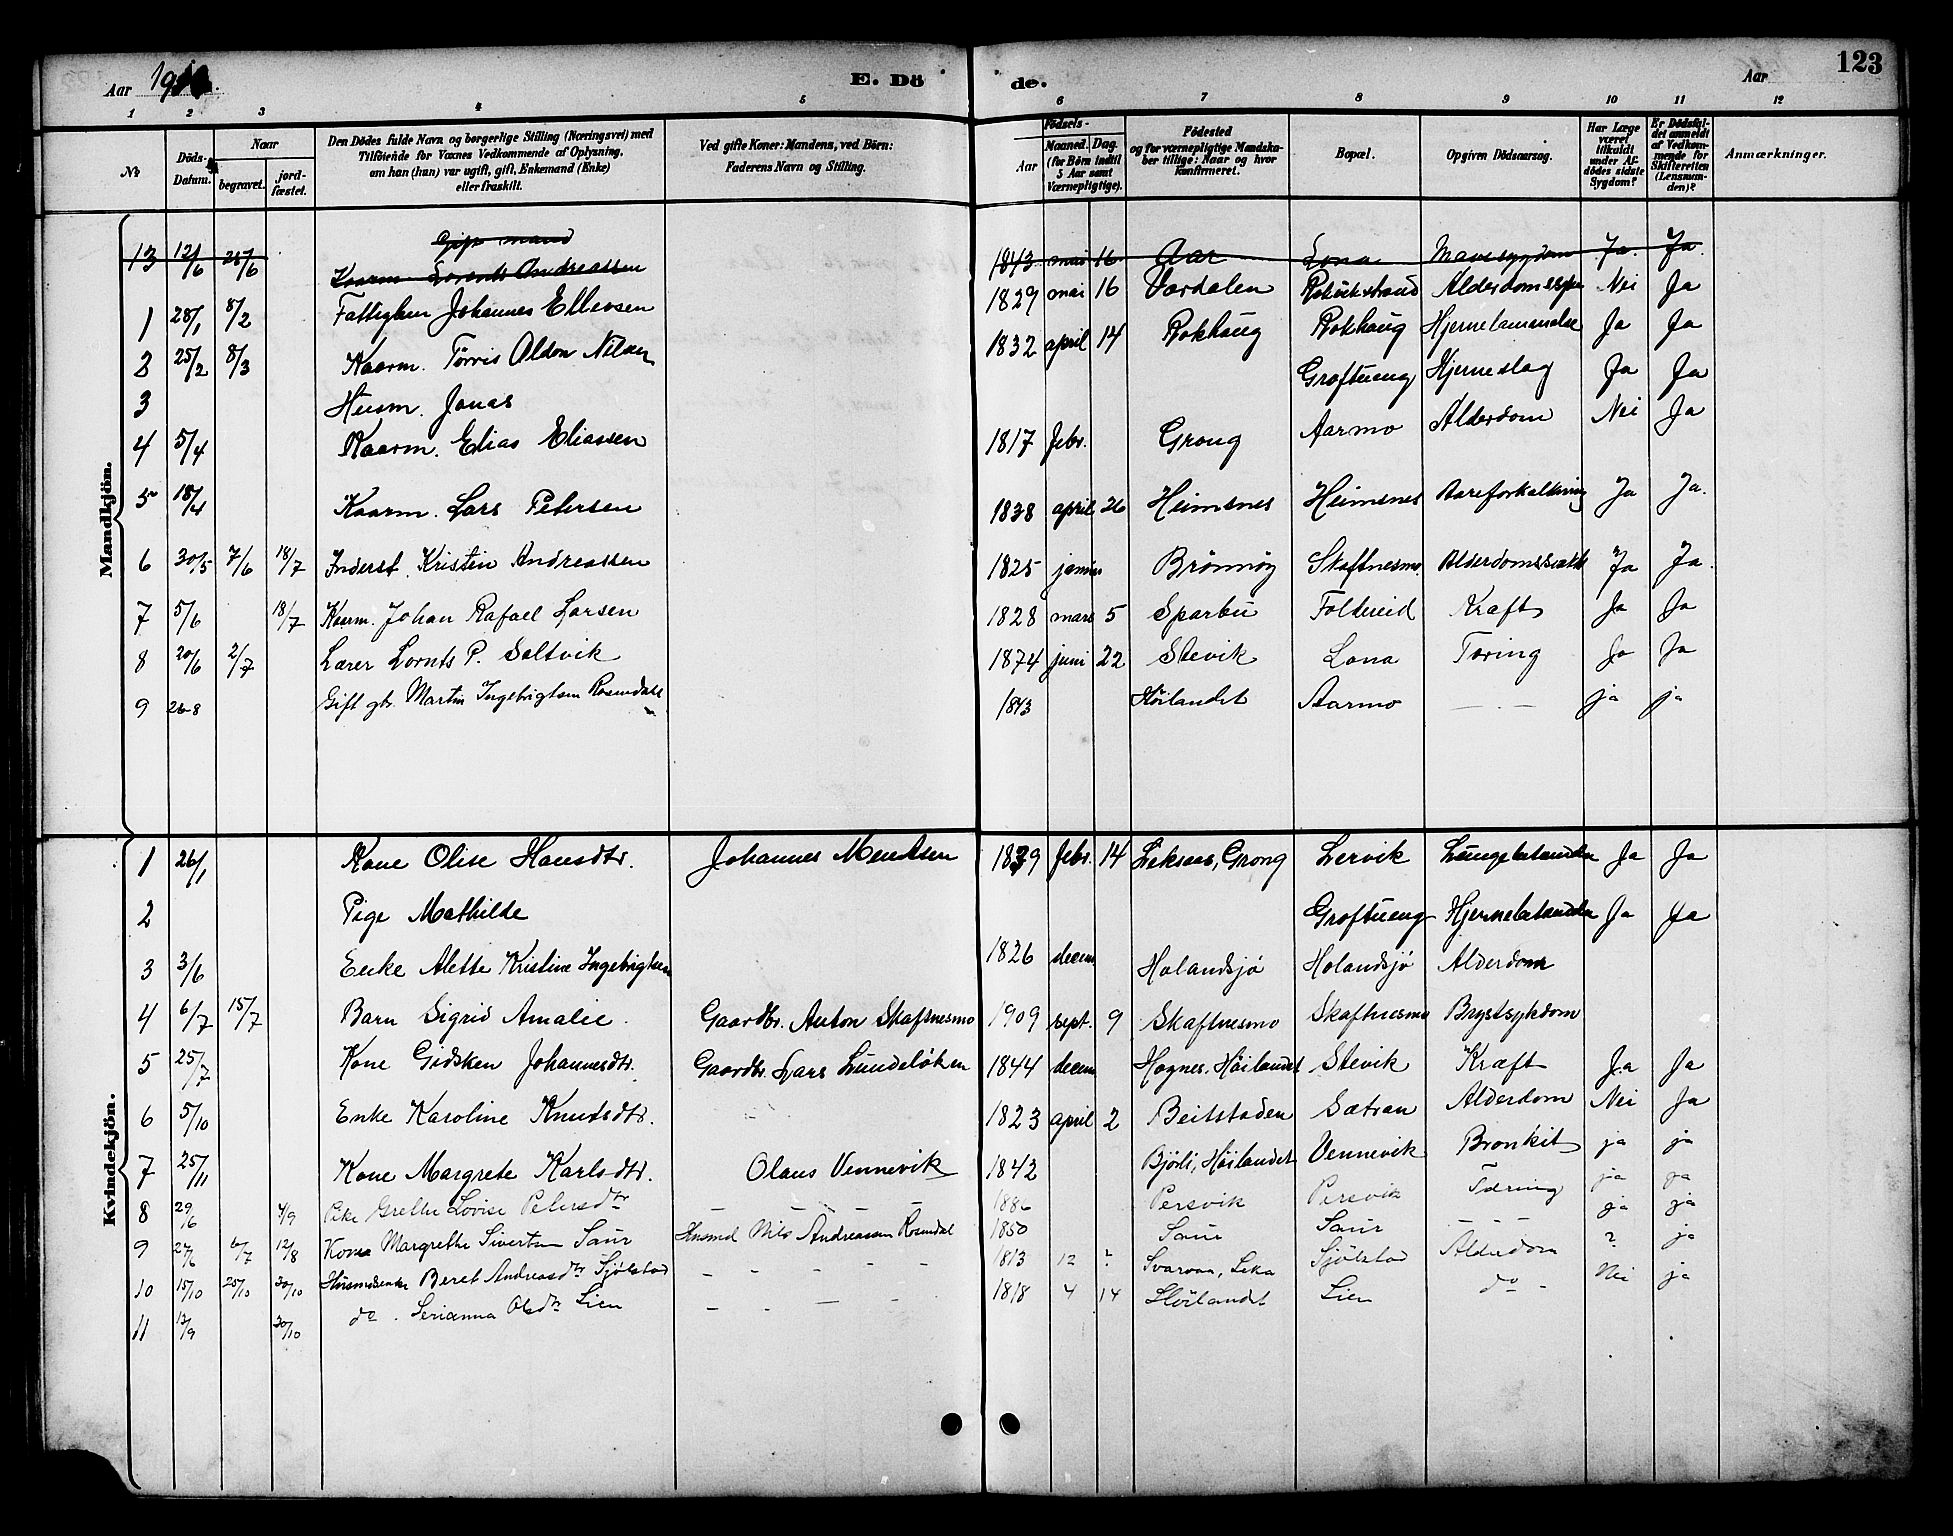 Aar 19
E. Dö
de.
Aar
123
1 2 3 4 5 6 7 8 9 10 11 12
No
Döds-Datum.
Naar
begravet.
jord-fæstet.
Den Dödes fulde Navn og borgerlige Stilling (Næringsvei) med
Tilföiende for Voxnes Vedkommende af Oplysning,
om han (hun) var ugift, gift, Enkemand (Enke)
eller fraskilt.
Ved gifte Koner: Mandens, ved Börn:
Faderens Navn og Stilling.
Födsels-
Aar
Maaned. Dag.
(for Börn indtil
5 Aar samt
Værnepligtige).
Födested
og for værnepligtige Mandska-
ber tillige: Naar og hvor
konfirmeret.
Bopæl.
Opgiven Dödsaarsag.
Har Læge
været
tilkaldt
under Af-
dödes sidste
Sygdom?
Er Dödsfal-
det anmeldt
af Vedkom-
mende for
Skifteretten
(Lensman-
den)?
Anmærkninger.
Mandkjön.
Gift mand
13 12/6 25/6 Kaarm Lornts Andreassen 1843 mai 16 Aar Lona Mavesygdom Ja. Ja.
1 28/1 8/2 Fattiglem Johannes Ellevsen 1829 mai 16 Værdalen Nei Ja
2 25/2 8/3 Kaarm. Törris Aldon Nilsen 1832 april 14 Rokhaug Rokhaug Hjernelammelse Ja Ja
3 Husm. Jonas Groftueng Hjerneslag Ja Ja
4 5/4 Kaarm. Elias Eliassen 1817 febr. Grong Aarmo Alderdom Nei Ja
5 18/4 Kaarm. Lars Petersen 1838 april 26 Heimsnes Heimsnes Aareforkalkning Ja Ja.
6 30/5 7/6 18/7 Inderst. Kristen Andreassen 1825 Brönnöy Skaftnesmo. Ja Ja.
7 5/6 18/7 Kaarm. Johan Rafael Larsen 1828 mars 5 Sparbu Foldereid Kræft Ja Ja
8 20/6 2/7 Lærer Lornts P. Saltvik 1874 juni 22 Stevik Lona Tæring Ja Ja
9 26-8 Gift gbr. Martin Ingebrigtsen Rosendal 1843 Höilandet Aarmo — - — ja ja
Kvindekjön.
1 26/1 Kone Olise Hansdtr. Johannes Mentsen 1839 febr. 14 Grong Lervik Lungebetændelse Ja Ja
2 Pige Mathilde Groftueng Hjernebetændelse Ja Ja
3 3/6 Enke Alette Kristine Ingebrigtsen 1826 decem Holandsjö Holandsjö Alderdom
4 6/7 15/7 Barn Sigrid Amalie. Gaardbr. Anton Skaftnesmo 1909 sept. 9 Skaftnesmo Skaftnesmo Brystsykdom
5 25/7 Kone Gidsken Johannesdtr. Gaardbr. Lars Lundelöken 1844 decem Hognes, Höilandet Stevik Kræft Ja Ja
6 5/10 Enke Karoline Knutsdtr. 1823 april 2 Beitstaden Sætran Alderdom Nei Ja
7 25/11 Kone Margrete Karlsdtr. Olaus Vennevik 1842 Bjorli, Höilandet Vennevik Bronkit ja ja
8 29/6 4/9 Pike Grethe Lovise Petersdtr — 1886 Persvik Persvik Tæring ja ja
9 27/6 6/7 12/8 Kone Margrethe Sivertsen Saur Husmd Nils Andreassen Rosendal 1850 Saur Saur — — ja ja
10 15/10 25/10 30/10 Husmdsenke Beret Andreasdtr Sjölstad — - - - - 1813 12 ? Svaroan, Leka Sjölstad Alderdom ? ja
11 13/9 30/10 do. Serianna Olsdtr Lien — - — - - 1818 4 14 Höilandet Lien do - Nei ja